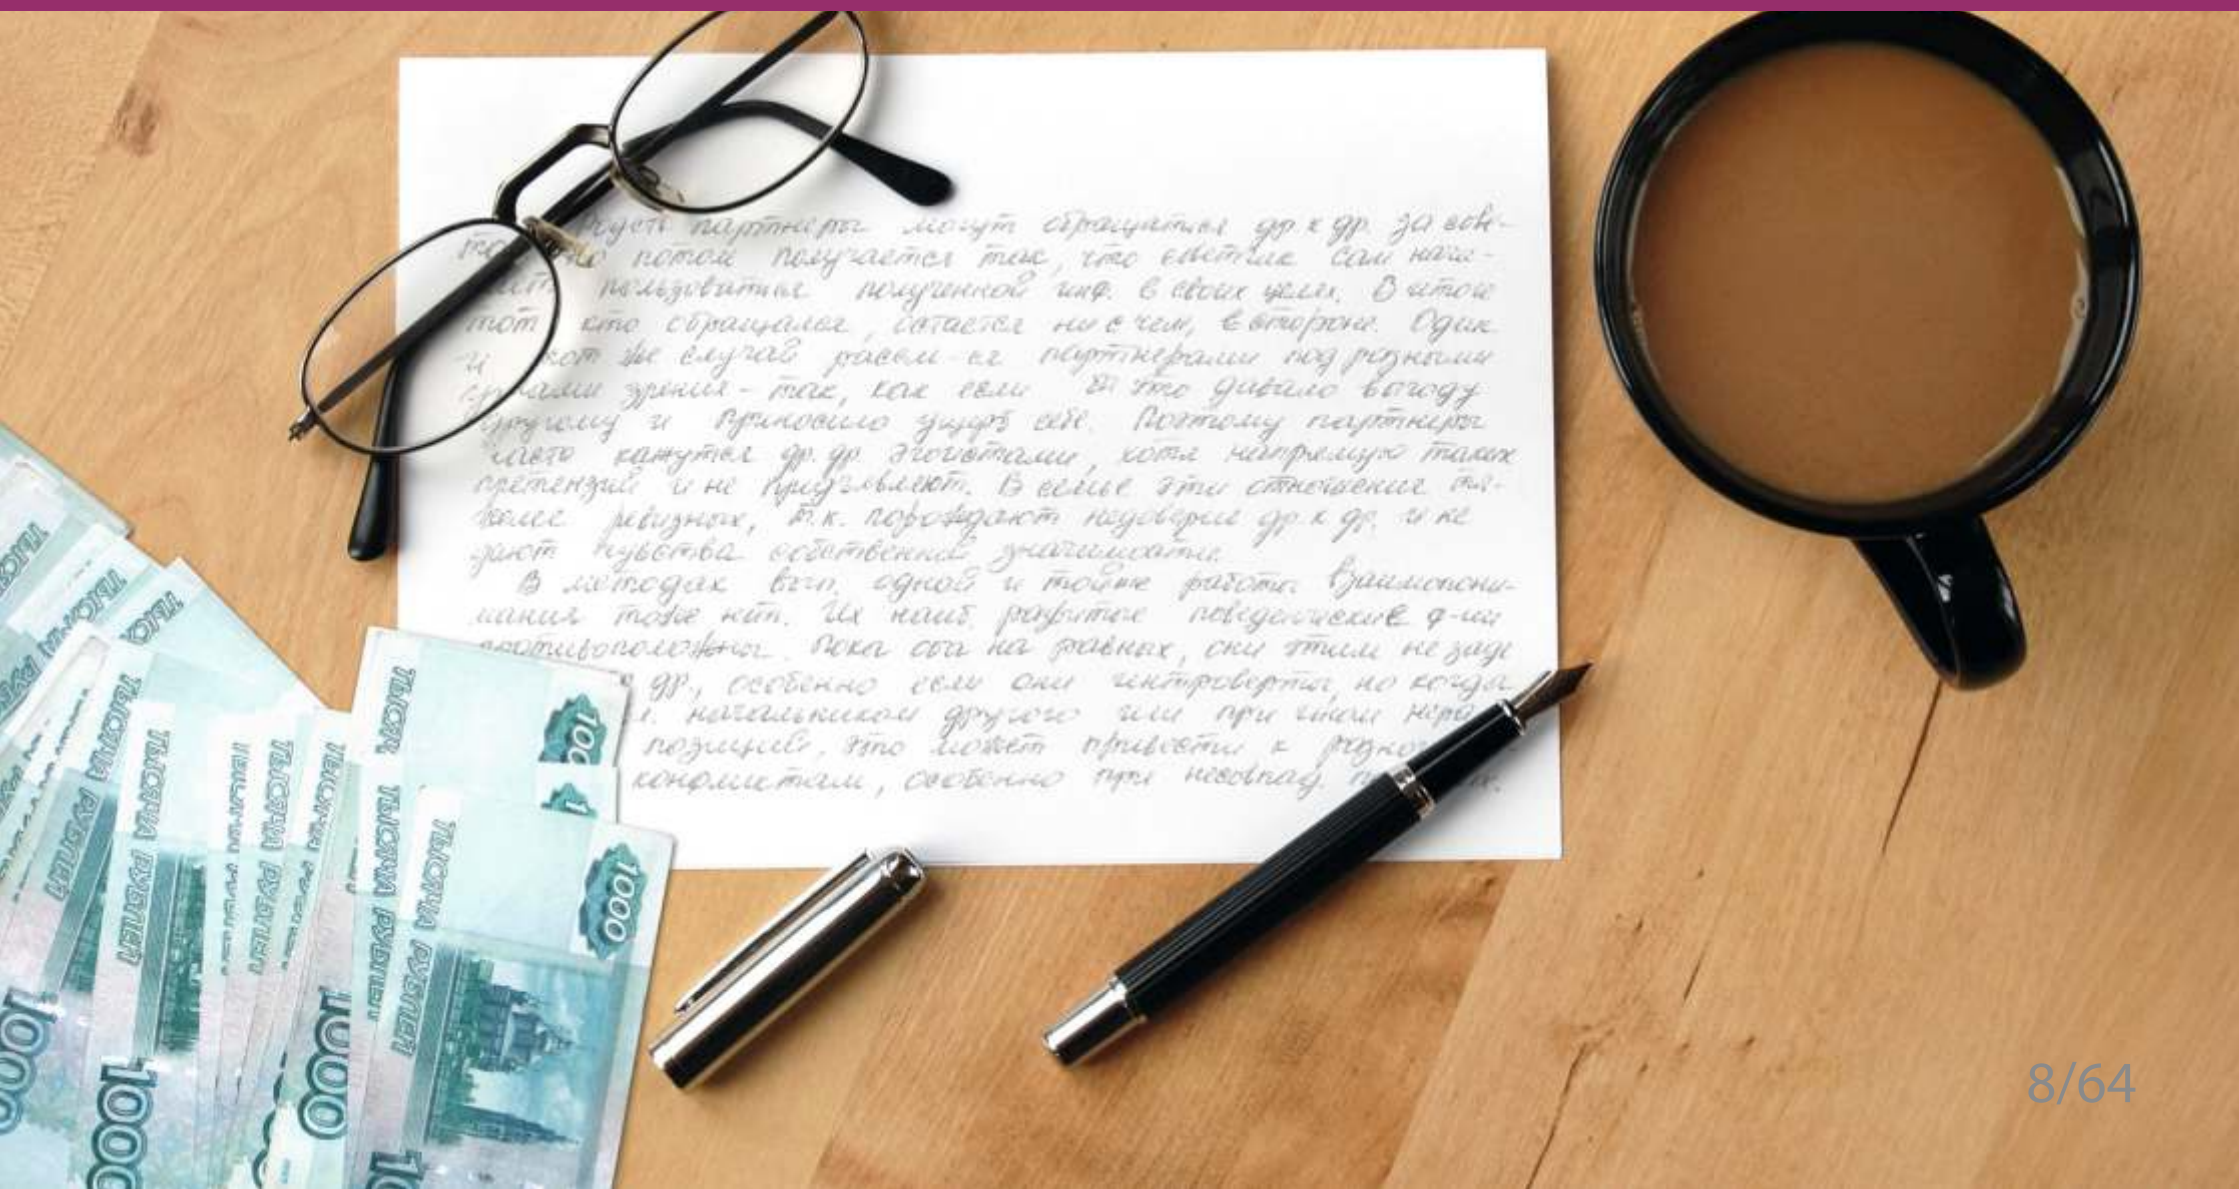 Пусть партнеры могут обращаться др к др. за сове-
но потом получается так, что советчик сам начи-
пользоваться полученной инф. в своих целях. В итоге
тот кто обращался, остается ни с чем, в стороне. Один
и тот же случай рассм-ся партнерами под разными
зрения - так, как если б это давало выгоду
другому и приносило ущерб себе. Поэтому партнеры
часто кажутся др. др. эгоистами, хотя напрямую таких
претензий и не предъявляют. В семье эти отношения тя-
желее ревизных, т.к. порождают недоверие др к др. и не
дают чувства собственной значимости.
В методах вып. одной и той же работы взаимопони-
мания тоже нет. Их наиб. развитые поведенческие ф-ии
противоположны. Пока оба на равных, они этим не заде
др., особенно если они интроверты, но когда
начальником другого или при ином нера
позиций, это может привести к
конфликтам, особенно при несовпад.
ТЫСЯЧА
ТЫСЯЧА
ТЫСЯЧА
ТЫСЯЧА РУБЛЕЙ
ТЫСЯЧА РУБЛЕЙ
ТЫСЯЧА РУБЛЕЙ
ТЫСЯЧА РУБЛЕЙ
1000
1000
1000
1000
8/64